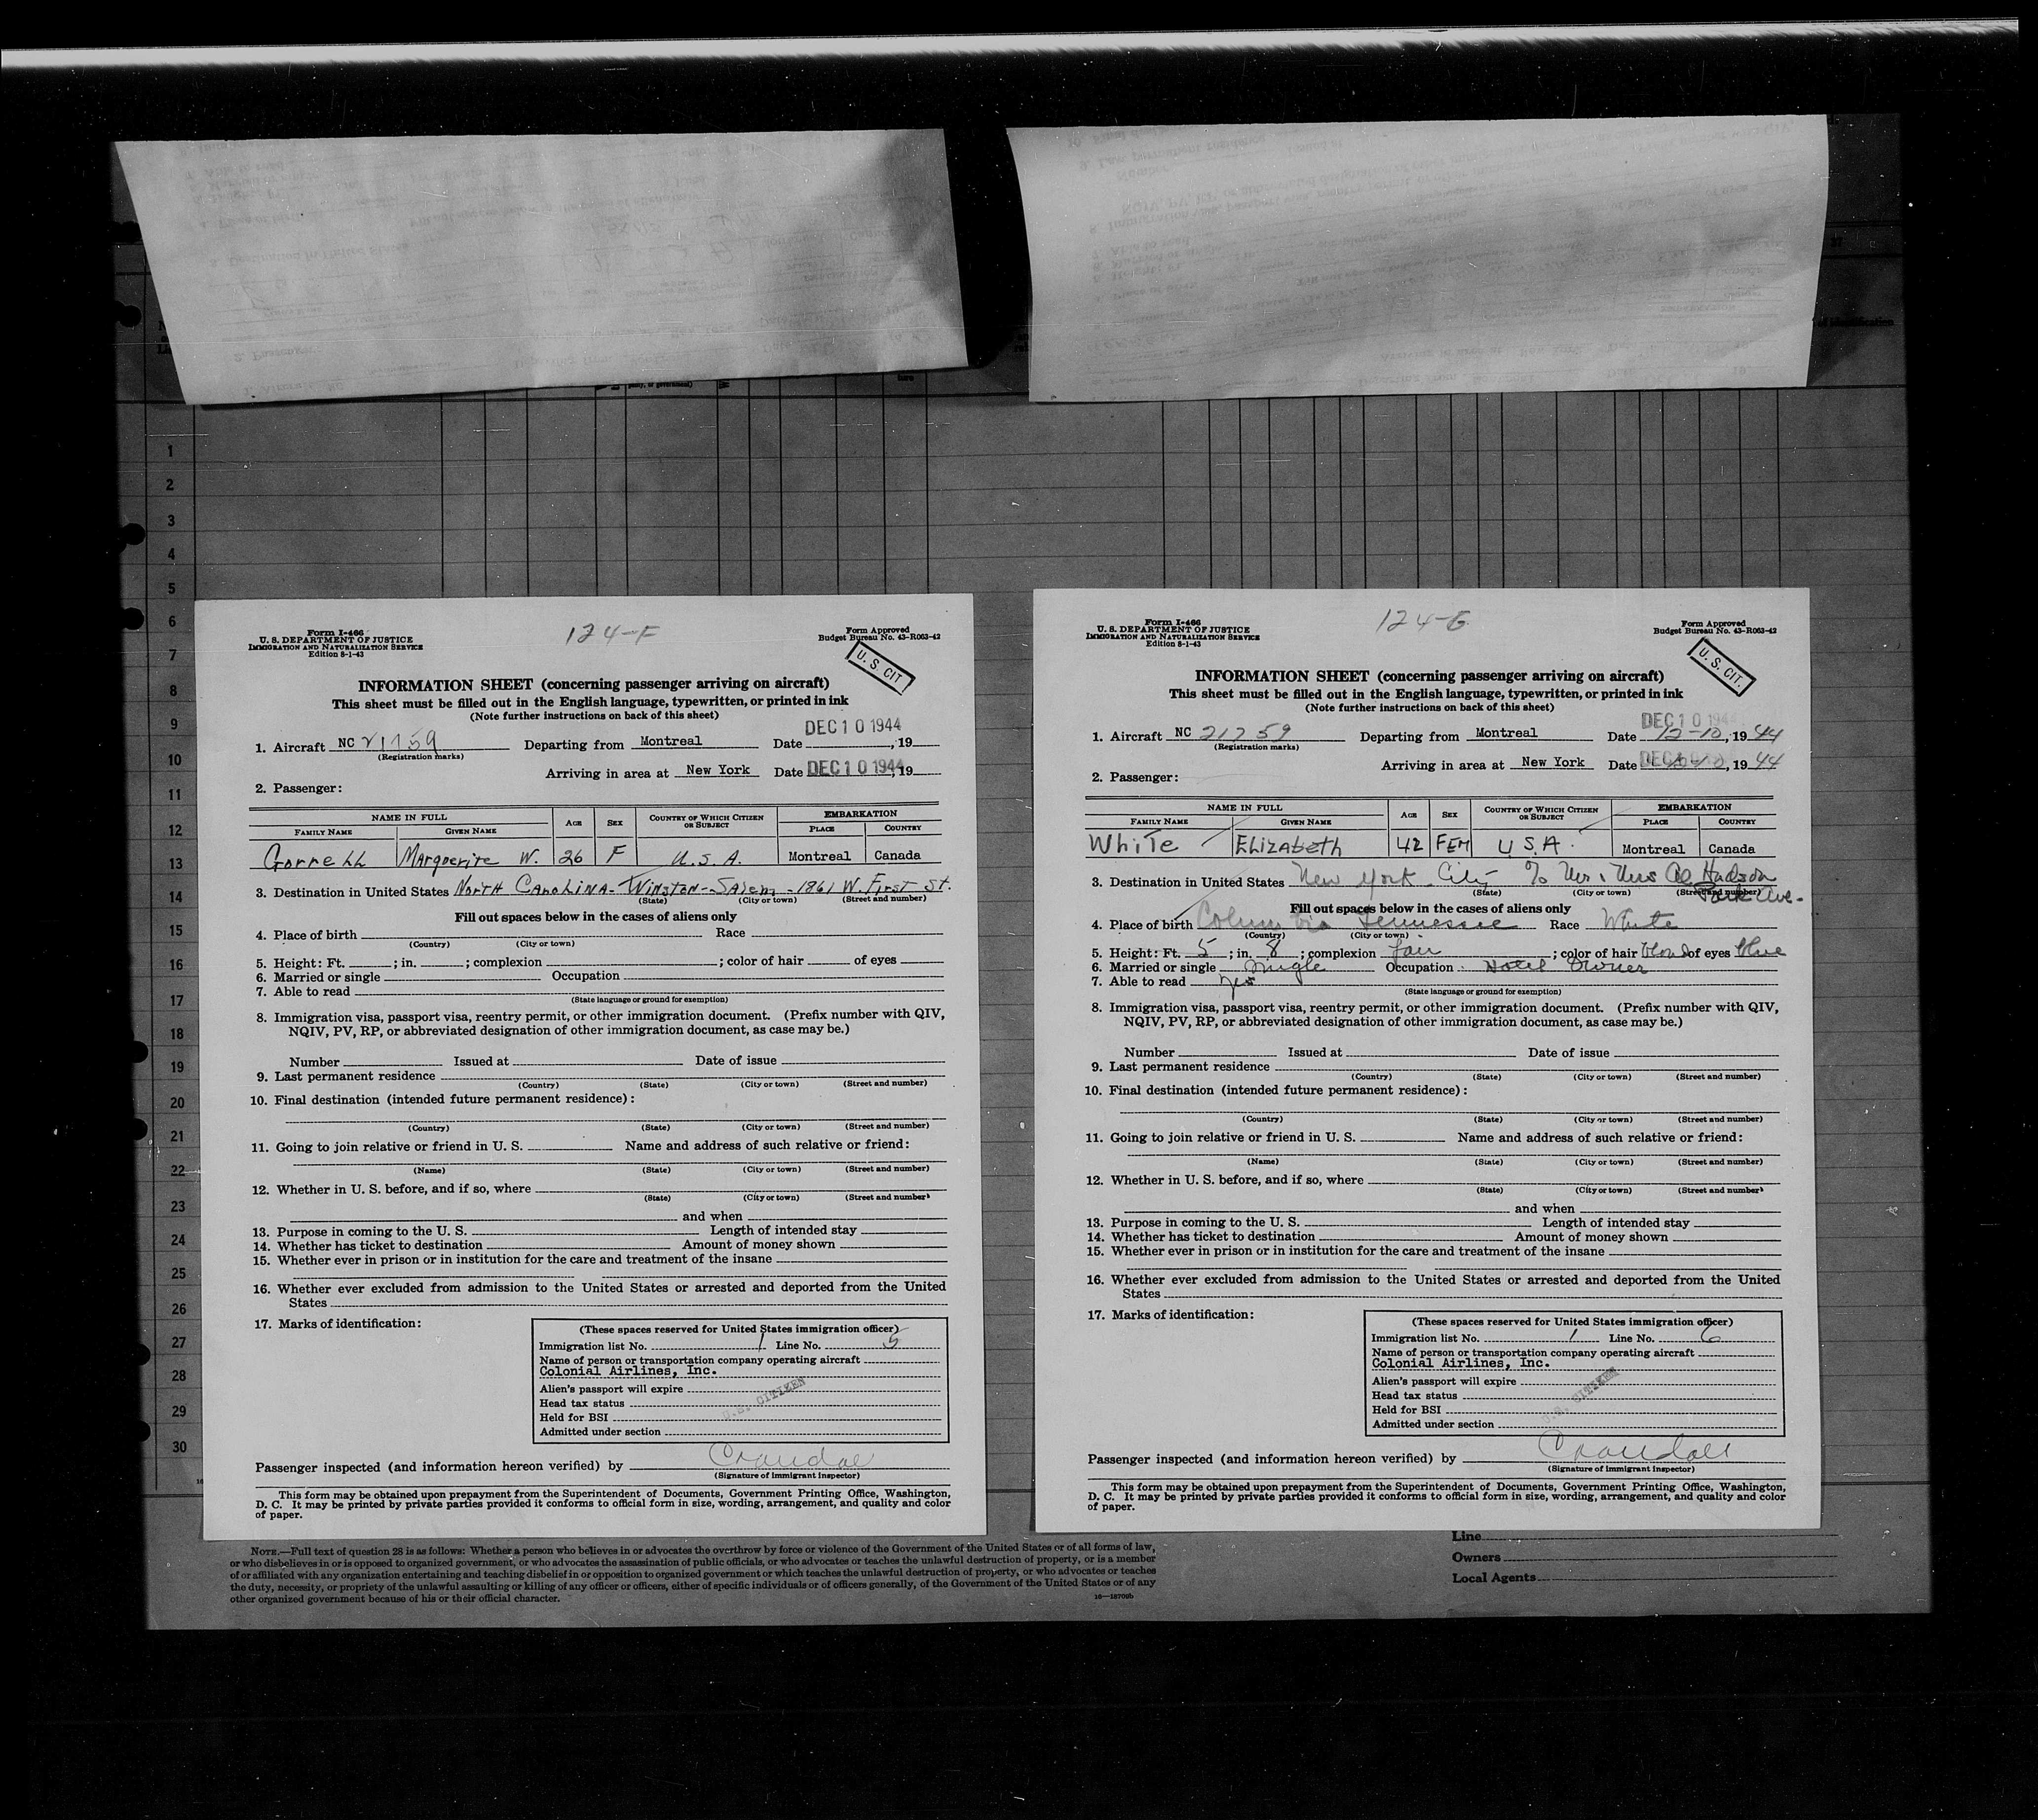 1
2
3
4
5
6
7
8
9
10
11
12
13
14
15
16
17
18
19
20
21
22
23
24
25
26
27
28
29
30
Form I-466
U. S. DEPARTMENT OF JUSTICE
IMMIGRATION AND NATURALIZATION SERVICE
Edition 8-1-43
124-F
Form Approved
Budget Bureau No. 43-R063-42
U. S. CIT.
INFORMATION SHEET (concerning passenger arriving on aircraft)
This sheet must be filled out in the English language, typewritten, or printed in ink
(Note further instructions on back of this sheet)
DEC 10 1944
1. Aircraft NC 21759 Departing from Montreal Date , 19
(Registration marks)
Arriving in area at New York Date DEC 10 1944, 19
2. Passenger:
NAME IN FULL AGE SEX COUNTRY OF WHICH CITIZEN OR SUBJECT EMBARKATION
FAMILY NAME GIVEN NAME PLACE COUNTRY
Gorrell Marguerite W. 26 F U.S.A. Montreal Canada
3. Destination in United States North Carolina - Winston-Salem - 1861 W. First St.
(State) (City or town) (Street and number)
Fill out spaces below in the cases of aliens only
4. Place of birth Race
(Country) (City or town)
5. Height: Ft. ; in. ; complexion ; color of hair of eyes
6. Married or single Occupation
7. Able to read
(State language or ground for exemption)
8. Immigration visa, passport visa, reentry permit, or other immigration document. (Prefix number with QIV,
NQIV, PV, RP, or abbreviated designation of other immigration document, as case may be.)
Number Issued at Date of issue
9. Last permanent residence
(Country) (State) (City or town) (Street and number)
10. Final destination (intended future permanent residence):
(Country) (State) (City or town) (Street and number)
11. Going to join relative or friend in U. S. Name and address of such relative or friend:
(Name) (State) (City or town) (Street and number)
12. Whether in U. S. before, and if so, where
(State) (City or town) (Street and number)
and when
13. Purpose in coming to the U. S. Length of intended stay
14. Whether has ticket to destination Amount of money shown
15. Whether ever in prison or in institution for the care and treatment of the insane
16. Whether ever excluded from admission to the United States or arrested and deported from the United
States
17. Marks of identification:
(These spaces reserved for United States immigration officer)
Immigration list No. 1 Line No. 5
Name of person or transportation company operating aircraft
Colonial Airlines, Inc.
Alien's passport will expire
Head tax status
U.S. CITIZEN
Held for BSI
Admitted under section
Passenger inspected (and information hereon verified) by Crandall
(Signature of immigrant inspector)
This form may be obtained upon prepayment from the Superintendent of Documents, Government Printing Office, Washington,
D. C. It may be printed by private parties provided it conforms to official form in size, wording, arrangement, and quality and color
of paper.
Form I-466
U. S. DEPARTMENT OF JUSTICE
IMMIGRATION AND NATURALIZATION SERVICE
Edition 8-1-43
124-G
Form Approved
Budget Bureau No. 43-R063-42
U. S. CIT.
INFORMATION SHEET (concerning passenger arriving on aircraft)
This sheet must be filled out in the English language, typewritten, or printed in ink
(Note further instructions on back of this sheet)
DEC 10 1944
1. Aircraft NC 21759 Departing from Montreal Date 12-10, 1944
(Registration marks)
Arriving in area at New York Date , 1944
2. Passenger:
NAME IN FULL AGE SEX COUNTRY OF WHICH CITIZEN OR SUBJECT EMBARKATION
FAMILY NAME GIVEN NAME PLACE COUNTRY
White Elizabeth 42 FEM U.S.A. Montreal Canada
3. Destination in United States New York City % Mr & Mrs Hudson
(State) (City or town) (Street and number)
Park Ave.
Fill out spaces below in the cases of aliens only
4. Place of birth Columbia Tennessee Race White
(Country) (City or town)
5. Height: Ft. 5; in. 8; complexion fair; color of hair blond of eyes blue
6. Married or single single Occupation Hotel Owner
7. Able to read yes
(State language or ground for exemption)
8. Immigration visa, passport visa, reentry permit, or other immigration document. (Prefix number with QIV,
NQIV, PV, RP, or abbreviated designation of other immigration document, as case may be.)
Number Issued at Date of issue
9. Last permanent residence
(Country) (State) (City or town) (Street and number)
10. Final destination (intended future permanent residence):
(Country) (State) (City or town) (Street and number)
11. Going to join relative or friend in U. S. Name and address of such relative or friend:
(Name) (State) (City or town) (Street and number)
12. Whether in U. S. before, and if so, where
(State) (City or town) (Street and number)
and when
13. Purpose in coming to the U. S. Length of intended stay
14. Whether has ticket to destination Amount of money shown
15. Whether ever in prison or in institution for the care and treatment of the insane
16. Whether ever excluded from admission to the United States or arrested and deported from the United
States
17. Marks of identification:
(These spaces reserved for United States immigration officer)
Immigration list No. 1 Line No. 6
Name of person or transportation company operating aircraft
Colonial Airlines, Inc.
Alien's passport will expire
Head tax status
U.S. CITIZEN
Held for BSI
Admitted under section
Passenger inspected (and information hereon verified) by Crandall
(Signature of immigrant inspector)
This form may be obtained upon prepayment from the Superintendent of Documents, Government Printing Office, Washington,
D. C. It may be printed by private parties provided it conforms to official form in size, wording, arrangement, and quality and color
of paper.
NOTE.—Full text of question 28 is as follows: Whether a person who believes in or advocates the overthrow by force or violence of the Government of the United States or of all forms of law,
or who disbelieves in or is opposed to organized government, or who advocates the assassination of public officials, or who advocates or teaches the unlawful destruction of property, or is a member
of or affiliated with any organization entertaining and teaching disbelief in or opposition to organized government or which teaches the unlawful destruction of property, or who advocates or teaches
the duty, necessity, or propriety of the unlawful assaulting or killing of any officer or officers, either of specific individuals or of officers generally, of the Government of the United States or of any
other organized government because of his or their official character.
16—18709b
Line
Owners
Local Agents